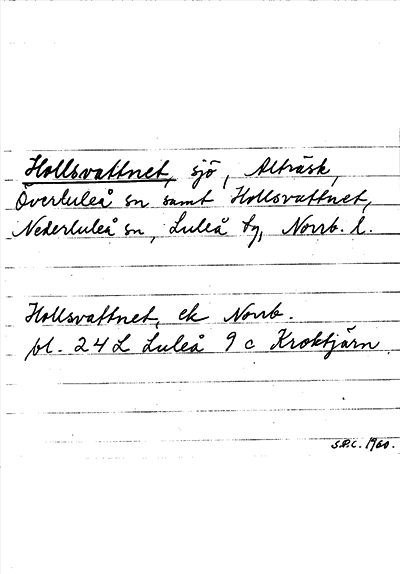 Hollsvattnet, sjö, Alträsk,
Överluleå sn samt Hollsvattnet,
Nederluleå sn, Luleå tg, Norrb. l.
Hollsvattnet, ek Norrb.
bl. 24 L Luleå 9 c Kroktjärn
1960.